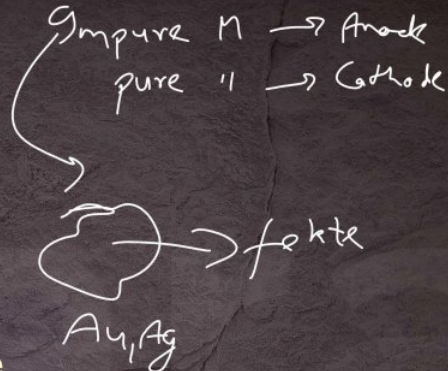 Impure M → Anode
pure " → Cathode
→ fekte
Au, Ag